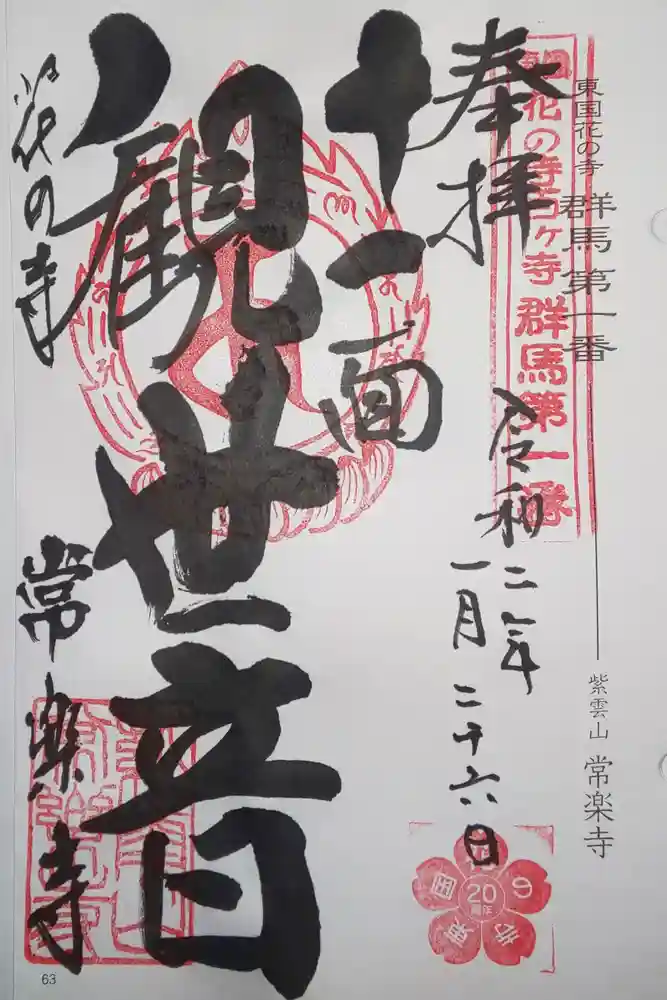 東国花の寺 群馬第一番
紫雲山 常楽寺
東国花の寺百ヶ寺 群馬第一番
奉拝
令和二年
一月二十六日
十一面
観世音
花の寺
常楽寺
東国花の寺
20
周年
63